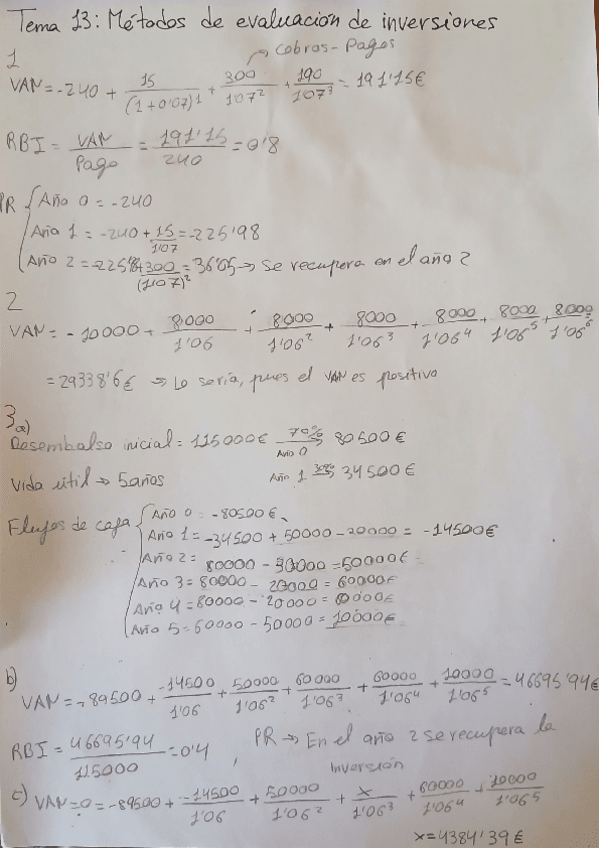 Tema 13: Métodos de evaluación de inversiones
→ Cobros - Pagos
1
VAN = -240 + 15/(1+0'07)^1 + 300/1'07^2 + 190/1'07^3 = 191'15€
RBI = VAN/Pago = 191'15/240 = 0'8
PR { Año 0 = -240
Año 1 = -240 + 15/1'07 = -225'98
Año 2 = -225'98 + 300/(1'07)^2 = 36'05 → Se recupera en el año 2
2
VAN = -10000 + 8000/1'06 + 8000/1'06^2 + 8000/1'06^3 + 8000/1'06^4 + 8000/1'06^5 + 8000/1'06^6
= 29338'6€ → Lo sería, pues el VAN es positivo
3 a)
Desembolso inicial = 115000€ 70% Año 0 → 80500€
Vida útil → 5 años Año 1 30% → 34500€
Flujos de caja { Año 0 = -80500€
Año 1 = -34500 + 50000 - 30000 = -14500€
Año 2 = 80000 - 30000 = 50000€
Año 3 = 80000 - 20000 = 60000€
Año 4 = 80000 - 20000 = 60000€
Año 5 = 60000 - 50000 = 10000€
b)
VAN = -89500 + -14500/1'06 + 50000/1'06^2 + 60000/1'06^3 + 60000/1'06^4 + 10000/1'06^5 = 46695'94€
RBI = 46695'94/115000 = 0'4, PR → En el año 2 se recupera la
inversión
c) VAN = 0 = -89500 + -14500/1'06 + 50000/1'06^2 + x/1'06^3 + 60000/1'06^4 + 10000/1'06^5
x = 4384'39€